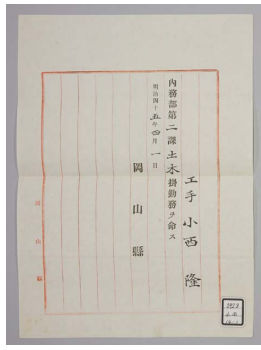 工手 小西 隆
内務部第二課土木掛勤務ヲ命ス
明治四十五年四月一日
岡山縣
岡山縣